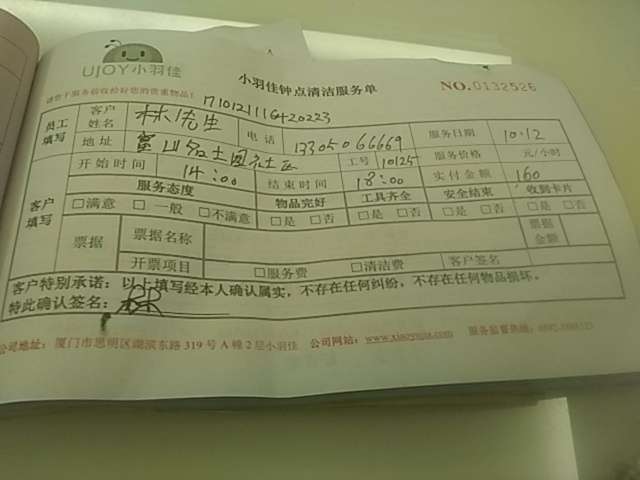 UJOY小羽佳
小羽佳钟点清洁服务单
NO.0132526
请您于服务前收拾好您的贵重物品!
员工填写
客户姓名 林先生 电话 13305066669 服务日期 10.12
地址 富山名士园社区 工号 10125 服务价格 元/小时
开始时间 14:00 结束时间 18:00 实付金额 160
客户填写
服务态度 物品完好 工具齐全 安全结束 收到卡片
□满意 □一般 □不满意 □是 □否 □是 □否 □是 □否 □是 □否
票据 票据名称 票据金额
开票项目 □服务费 □清洁费 客户签名
客户特别承诺:以上填写经本人确认属实,不存在任何纠纷,不存在任何物品损坏。
特此确认签名:
公司地址:厦门市思明区湖滨东路 319 号 A 栋 2 层小羽佳 公司网站: 服务监督热线: